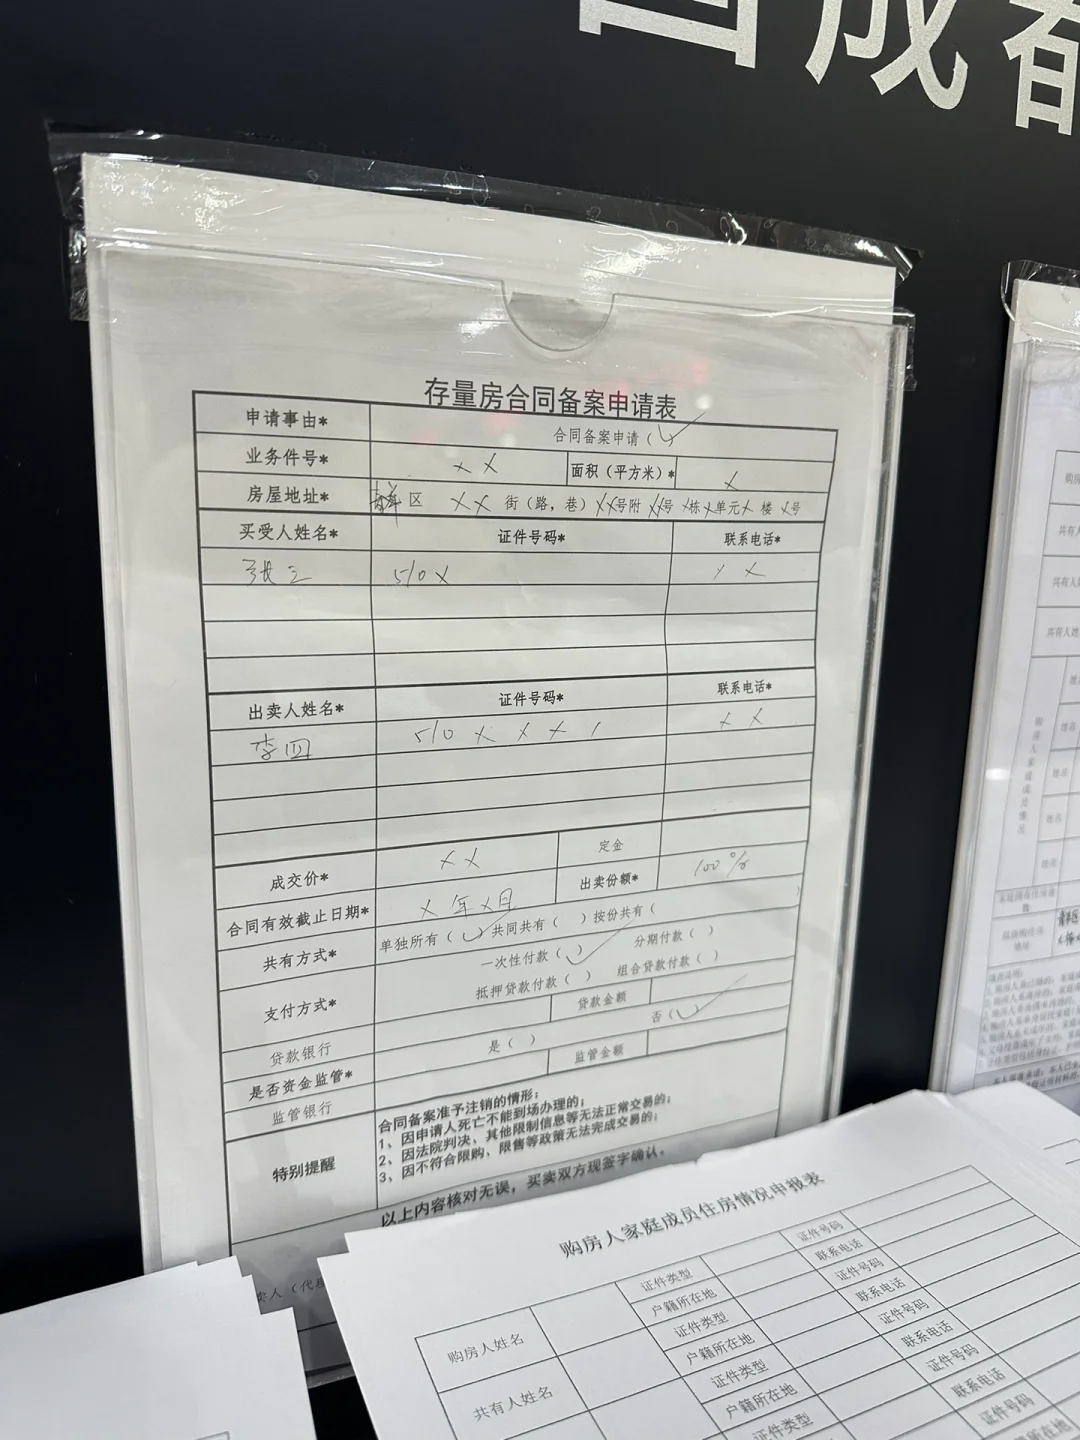 成都
存量房合同备案申请表
申请事由* 合同备案申请（✓）
业务件号* ×× 面积（平方米）* ×
房屋地址* 青羊区 ×× 街（路，巷）××号附××号 ×栋×单元× 楼 ×号
买受人姓名* 证件号码* 联系电话*
张三 510× ××
出卖人姓名* 证件号码* 联系电话*
李四 510×××× ××
成交价* ×× 定金
合同有效截止日期* ×年×月 出卖份额* 100%
共有方式* 单独所有（✓）共同共有（ ）按份共有（ ）
支付方式* 一次性付款（✓） 分期付款（ ）
抵押贷款付款（ ） 组合贷款付款（ ）
贷款银行 贷款金额
是否资金监管* 是（ ） 否（✓）
监管银行 监管金额
特别提醒
合同备案准予注销的情形：
1、因申请人死亡不能到场办理的；
2、因法院判决、其他限制信息等无法正常交易的；
3、因不符合限购、限售等政策无法完成交易的；
以上内容核对无误，买卖双方现签字确认。
卖人（代
购房人家庭成员住房情况申报表
购房人姓名 证件类型 证件号码
户籍所在地 联系电话
共有人姓名 证件类型 证件号码
户籍所在地 联系电话
证件类型 证件号码
户籍所在地 联系电话
证件类型 证件号码
联系电话
证件号码
购房
共有人
共有人
共有人姓